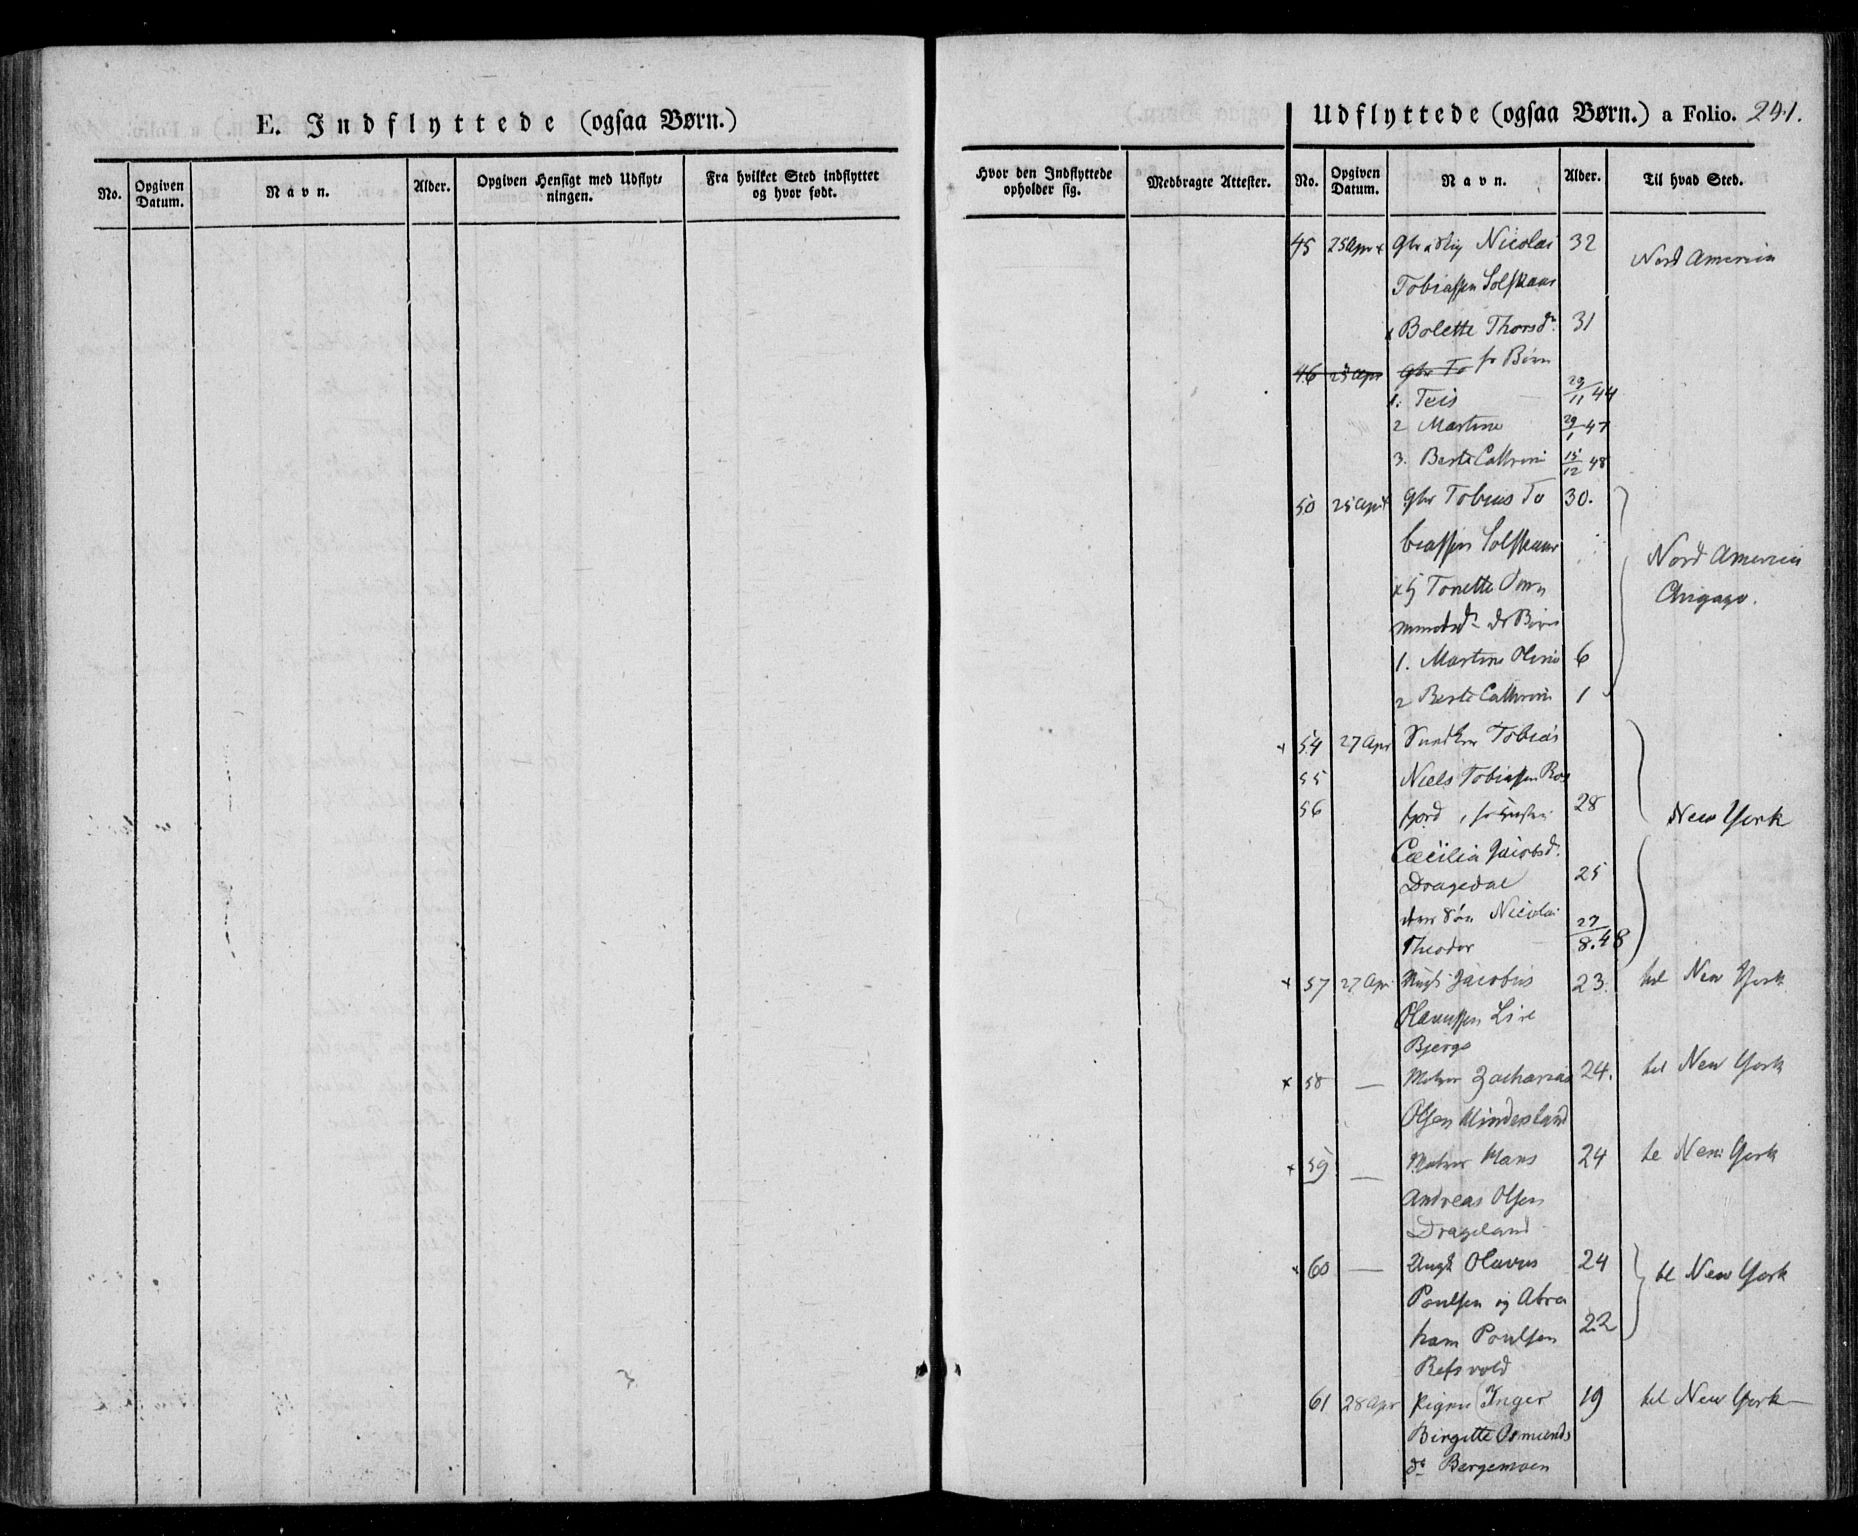 E. Indflyttede (ogsaa Børn.)
No. Opgiven Datum. Navn. Alder. Opgiven Hensigt med Udflytningen. Fra hvilket Sted indflyttet og hvor født.
Udflyttede (ogsaa Børn.) a Folio. 241.
Hvor den Indflyttede opholder sig. Medbragte Attester. No. Opgiven Datum. Navn. Alder. Til hvad Sted.
45 25 Apr x Nicolai 32 Nord America
Tobiassen Solfskaar
x Bolette Thorsdr 31
46 25 Apr Gbr To Børn
1. Teis 29/11 44
2 Martine 29/1 47
3. Berte Cathrine 15/12 48
50 25 Apr x Gbr Tobias To 30.
biassen Solfskaar Nord America
x Tonette Chigago.
Børn
1. Martine Oline 6
2 Berte Cathrine 1
x 54 27 Apr Tobias
55 Niels Tobiassen Ros
56 fjord 28 New York
Cæcilia Jacobsdr.
Dragedal 25
Søn Nicolai
Theodor 27/8.48
x 57 27 Apr Ungk Jacobus 23. til New York
Olaussen Lire
Bjerge
x 58 — Matros Zacharias 24. til New York
Olsen
x 59 — Matros Hans 24 til New York
Andreas Olsen
Drageland
x 60 — Ungk Olavus 24 til New York
Poulsen og Abra
ham Poulsen 22
Refsvold
61 28 Apr Pigen Inger 19 til New York —
Birgitte Osmunds
dr Bergemoen